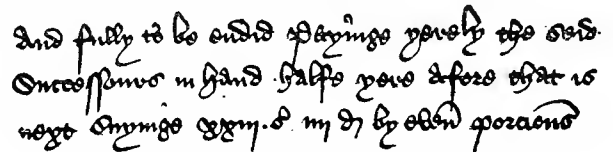 And fully to be endid payinge yerely the seid
Successours in hand halfe yere afore that is
next suyinge xxiii.s iiii d by even porcions